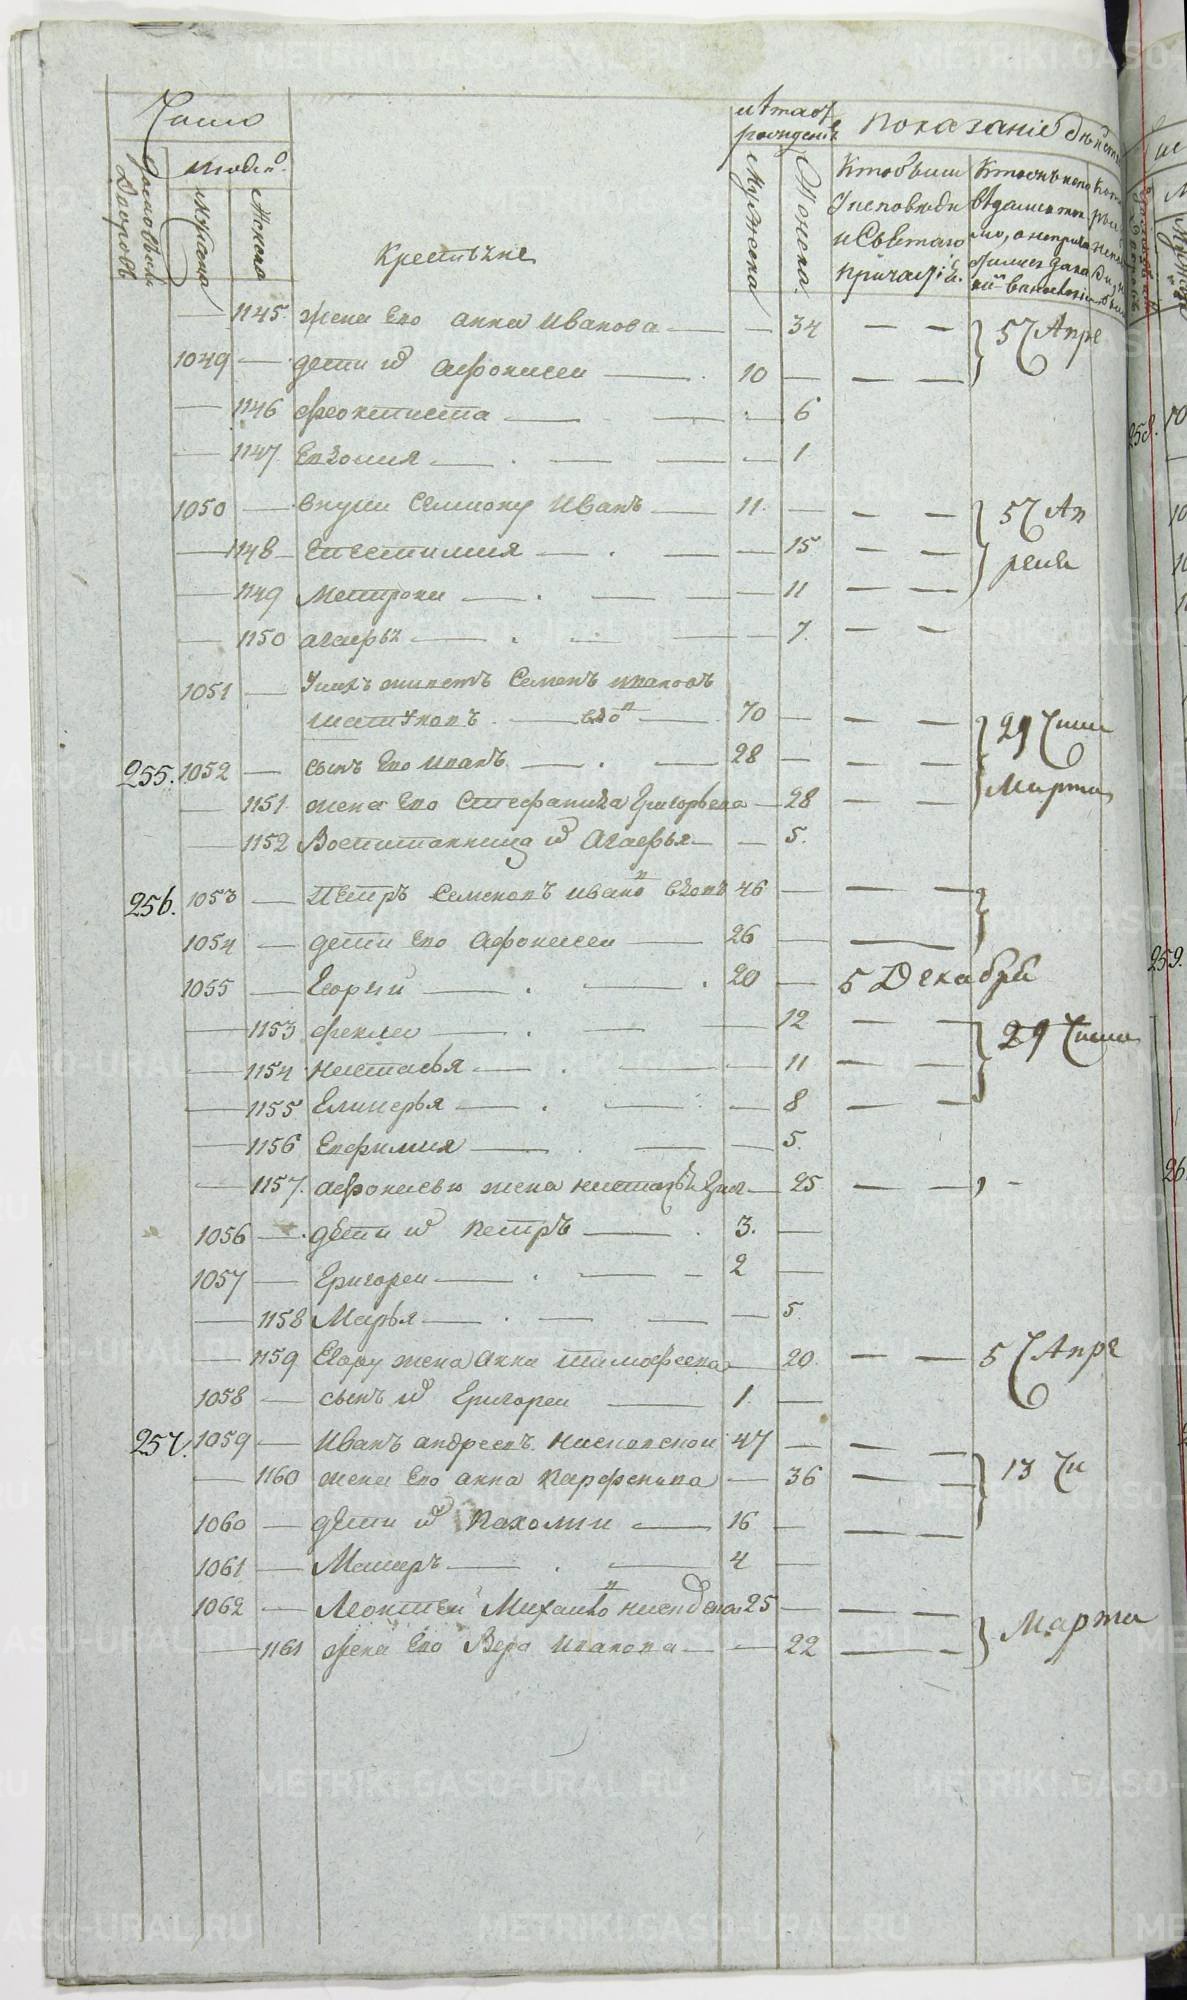 Число
Домовъ или
Дворовъ
людей
Мужеска
Женска
Крестьяне
Мужеска
Женска
Показаніе
Кто были
у исповѣди
и Святаго
причастія.
1145 жена Его анна Иванова — 34 — — 57 Апре
1049 — дети ихъ Афонасеи — 10 — — —
1146 феоктиста — 6
1147 Евдокия — 1
1050 — внуки Семиону Иванъ — 11 — — — 57 Ап
1148 Епестимия — 15 — — реля
1149 Матрона — 11 — —
1150 агафья — 7 — —
1051 — У нихъ живетъ Семенъ ивановъ
70 — — — 29 Числ
255. 1052 — сынъ Его иванъ — 28 — — —
Марта
1151 жена Его Стефанида Григорьева — 28 — —
1152 Воспитанница ихъ Агафья — 5.
256. 1053 — Петръ Семеновъ вдовъ 46 — — —
1054 — дети Его Афонасеи — 26 — —
1055 — Георгии — 20 — 5 Декабря
1153 фекла — 12 — — 29 Числ
1154 настасья — 11 — —
1155 Гликерья — 8 — —
1156 Евфимия — 5.
1157. афонасью жена настасья — 25 — —
1056 — дети ихъ петръ — 3. —
1057 — Григореи — 2 —
1158 Марья — 5.
1159 Егору жена Анна тимофеева — 20. — — 57 Апре
1058 — сынъ ихъ Григореи — 1. —
257. 1059 — Иванъ андреевъ 47 — — —
13 Чи
1160 жена Его анна парфенова — 36 — —
1060 — дети ихъ Пахомии — 16 — — —
1061 — Макаръ — 4 —
1062 — Леонтеи Михаило 25 — — —
Марта
1161 жена Его Вера Иванова — 22 — —
METRIKI.GASO-URAL.RU